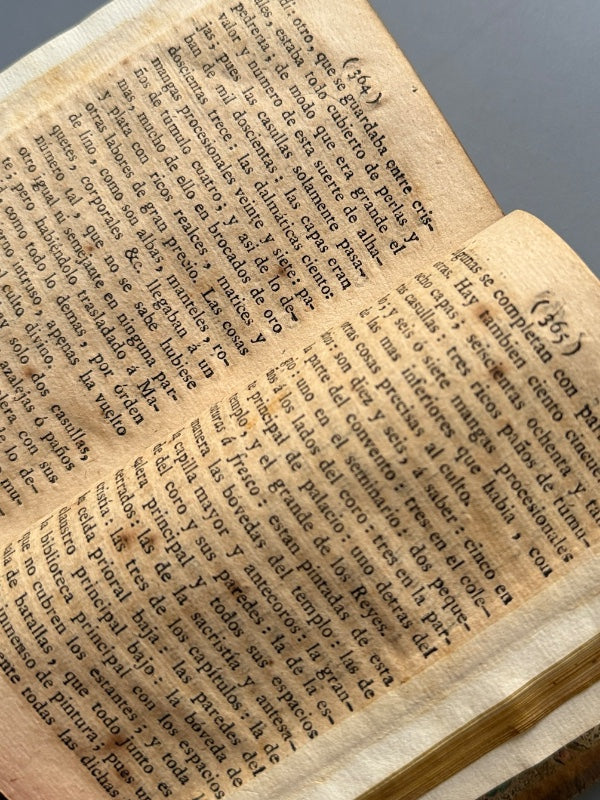 (364)
di: otro, que se guardaba entre cris-
ales, estaba todo cubierto de perlas y
pedrería; de modo que era grande el
valor y número de esta suerte de alha-
jas; pues las casullas solamente pasa-
ban de mil doscientas: las capas eran
doscientas trece: las dalmáticas ciento:
mangas procesionales veinte y siete: pa-
ños de túmulo cuatro, y así de lo de-
mas, mucho de ello en brocados de oro
y plata con ricos realces, matices y
otras labores de gran precio. Las cosas
de lino, como son albas, manteles, ro-
quetes, corporales &c. llegaban á un
número tal, que no se sabe hubiese
otro igual ni semejante en ninguna par-
te; pero habiéndolo trasladado á Ma-
como todo lo demas, por órden
intruso, apenas ha vuelto
culto divino,
y solo dos casullas,
azalejas ó paños
con sus
lo de-
mu-
(365)
se completan con
Hay tambien ciento
capas; seiscientas ochenta y
casullas: tres ricos paños de túmu-
lo; y seis ó siete mangas procesionales
de las mas inferiores que habia, con
otras cosas precisas al culto.
son diez y seis, á saber: cinco en
la parte del convento: tres en el cole-
gio: uno en el seminario: dos peque-
ños á los lados del coro: tres en la par-
te principal de palacio: uno detras del
templo, y el grande de los Reyes.
á fresco: están pintadas de esta
manera las bóvedas del templo: las de
la capilla mayor y antecoros: la gran-
de del coro y sus paredes: la de la es-
calera principal y todos sus espacios
cerrados: las de la sacristía y antesa-
cristía: las tres de los capítulos: la de
la celda prioral baja: las paredes del
claustro principal bajo: la bóveda de
la biblioteca principal con los espacios
que no cubren los estantes; y toda
sala de batallas, que todo junto es
inmenso de pintura; pues
todas las dichas